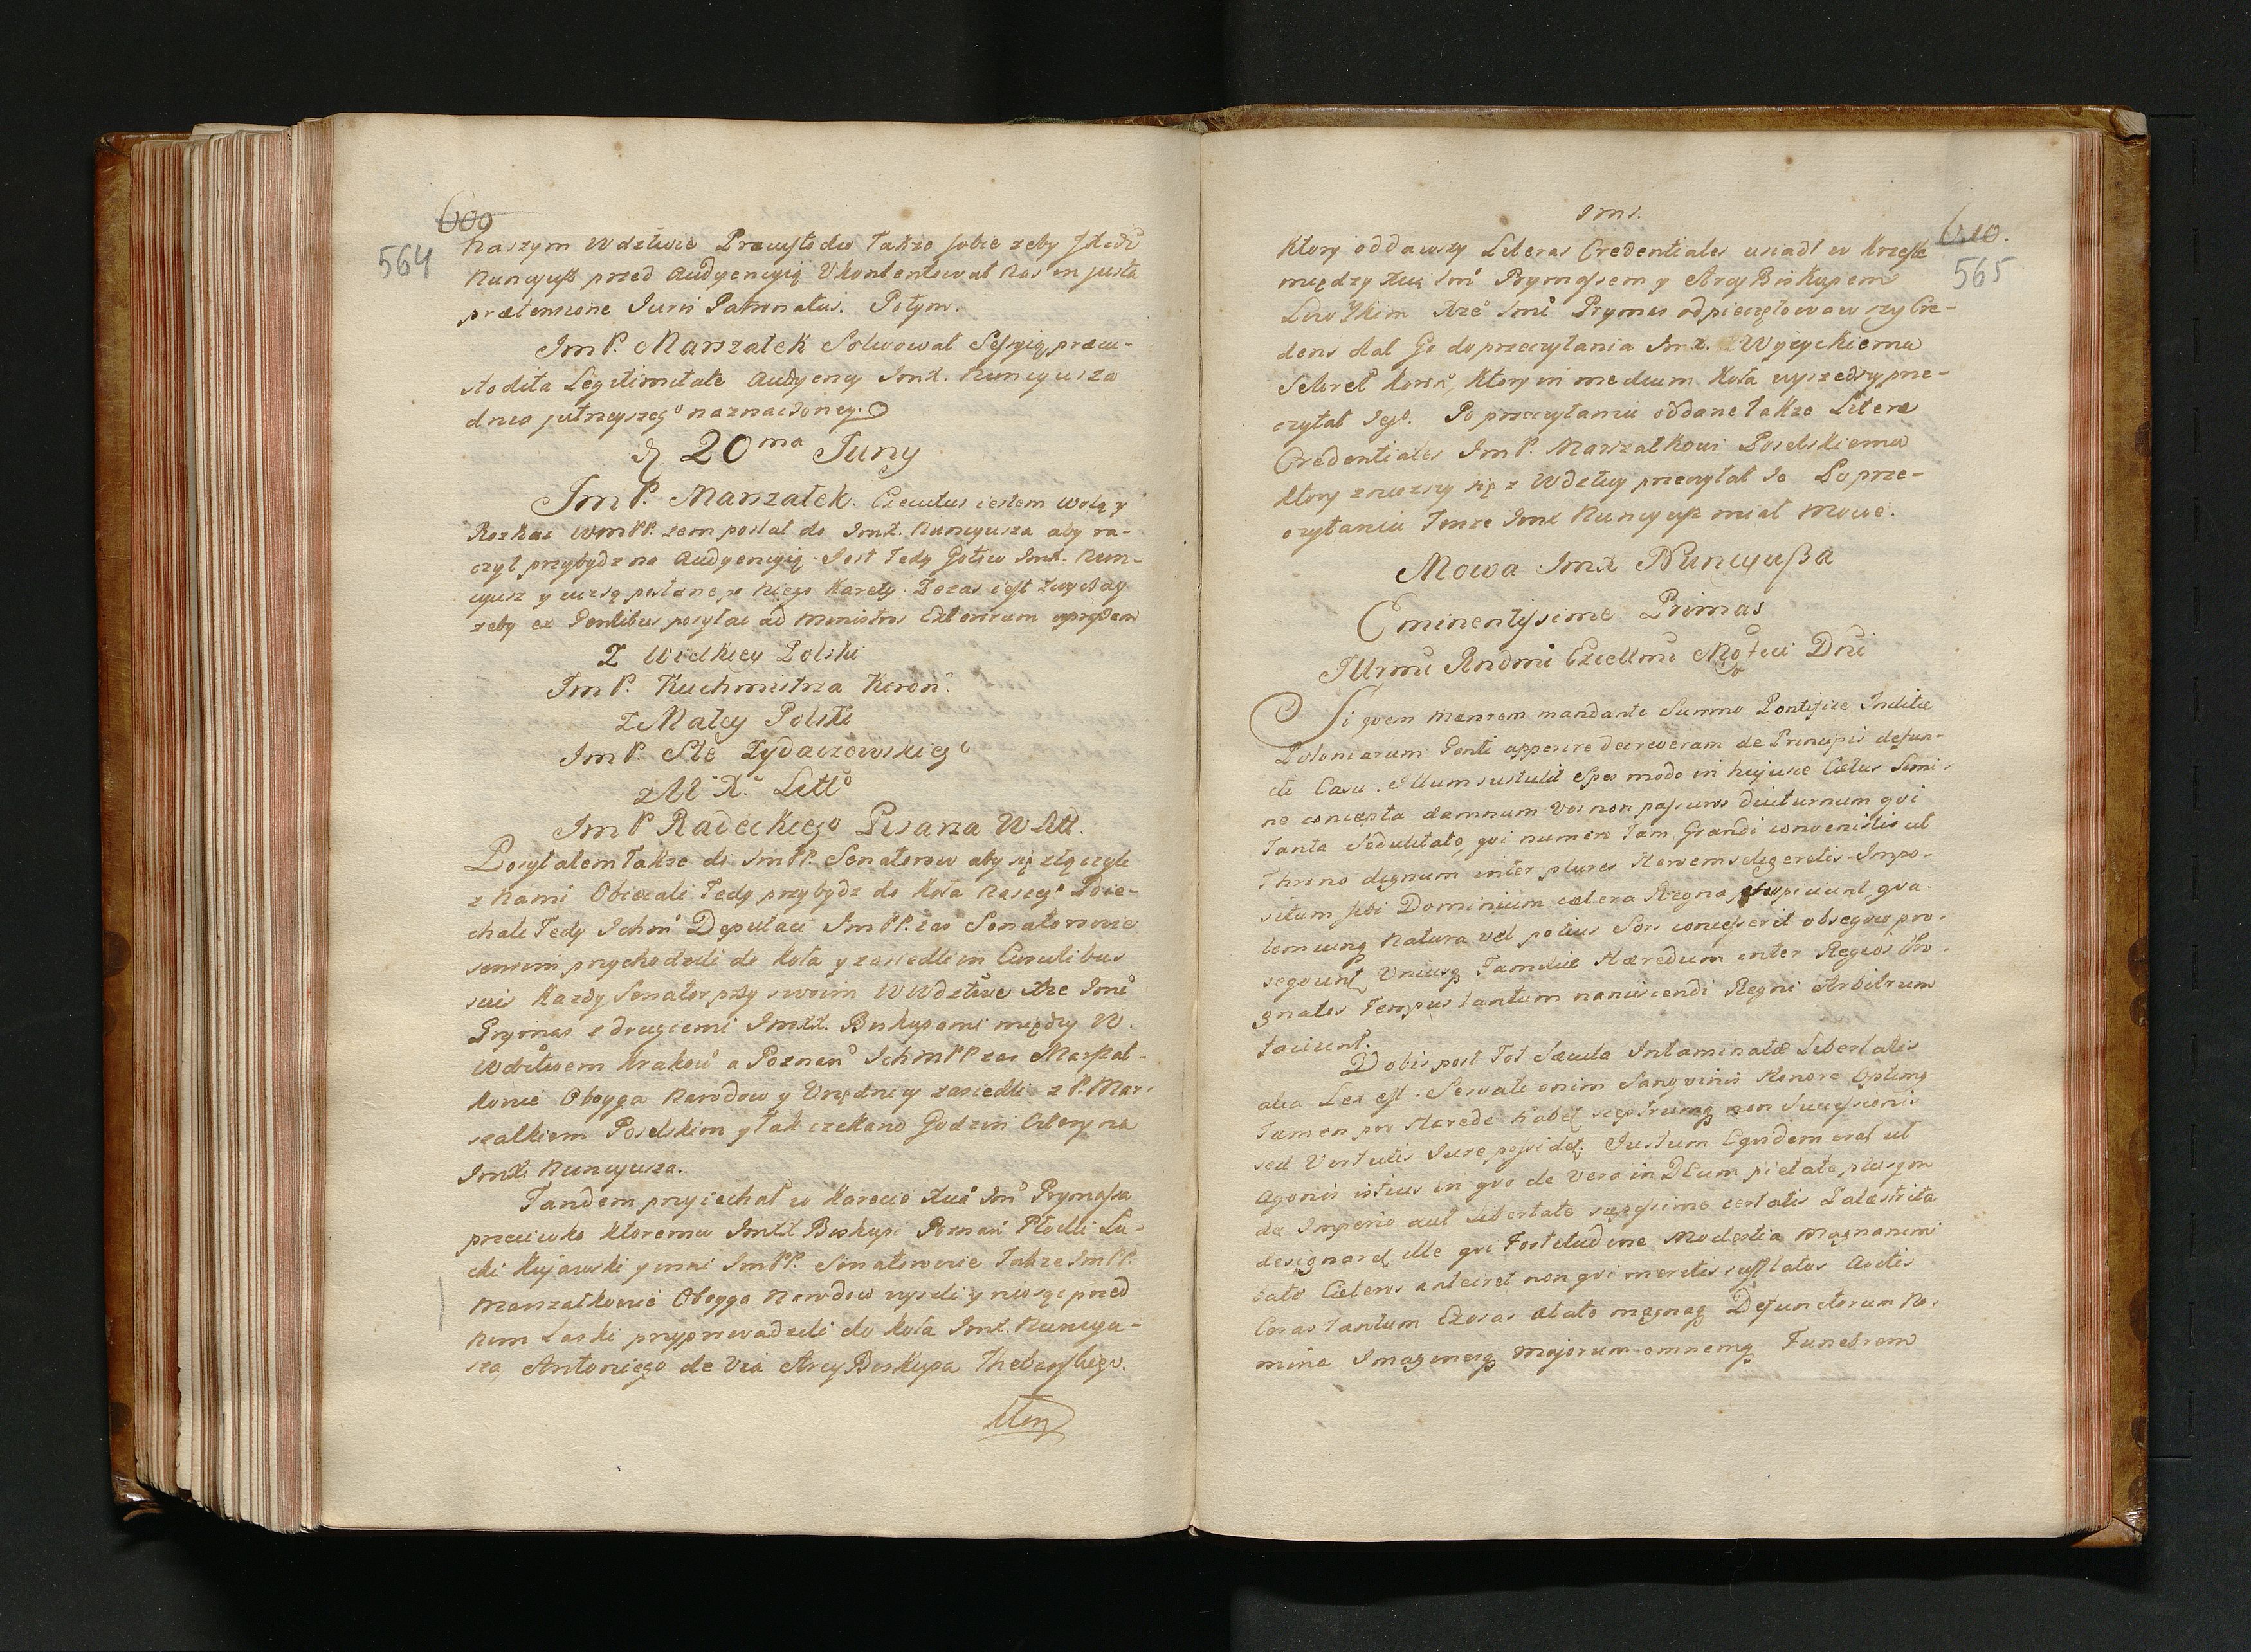 609
564
naszym Wdztwie Præcustodiw także sobie zeby
Nuncyusz przed Audyencyią Ukontentował nas in justa
prætensione Juris Patronatus. Potym.
Im P. Marszałek Solwował Sessyią præcu-
stodita Legitimitate Audyency Imx. Nuncyusza
dnia jutrzeyszegº naznaczoney.
d 20ma Juny
Im P. Marszałek. Executus iestem wolą y
Rozkaz WMPP. zem posłał do Imx. Nuncyusza aby ra-
czył przybydz na Audyencyią. Jest Tedy Gotow Imx. Nun-
cyusz y iuz są posłane po niego Karety. Zezas iest zwyczay
zeby ex Gentibus posyłac ad Ministros Exterorum upraszam
Z Wielkiey Polski
Im P. Kuchmistrza Koron.
z Małey Polski
Im P. Stę Zydaczewskiegº
z W. X. Littº
Im P Radeckiego Pisarza W Litt.
Posyłałem także do ImPP. Senatorow aby się złączyli
z nami Obiecali Tedy przybydz do Koła naszegº Poie-
chali Tedy Ichm Deputaci ImPP. zas Senatorowie
sensim przychodzili do Koła y zasiedli in Curulibus
suis Kazdy Senator przy swoim WWdztwie Xze Imc
Prymas z drugiemi ImXX. Biskupami między W.
Wdztwem Krakow a Poznan Ichm PP zas Marszał-
kowie Oboyga Narodow y Urzędnicy zasiedli z P. Mar-
szałkiem Poselskim y Tak czekano Godzin Cztery na
Imx. Nuncyusza.
Tandem przyiechał w Karecie Xcia Im Prymassa
przeciwko ktoremu Imxx Biskupi Poznan Płocki Łu-
cki Kujawski y inni ImPP. Senatorowie Takze ImPP.
Marszałkowie Oboyga Narodow wyszli y niosąc przed
nim Laski przyprowadzili do Koła Imx. Nuncyu-
sza Antoniego de Via Arcy Biskupa Thebanskiego.
Ktory
Imx.
610.
565
Ktory oddawszy Literas Credentiales usiadł w Krzesle
między Xcią Im Prymassem y Arcy Biskupem
Lwowskim Xze Imc Prymas odpieczętowawszy Cre-
dens dał Go do przeczytania Imx. Wyzyckiemu
Sekret Koron, Ktory in medium Koła wyszedszy prze-
czytał Jegº. Po przeczytaniu oddane także Literæ
Credentiales Im P. Marszałkowi Poselskiemu
Ktory znioszy się z Wdztwy przeczytał Je Po prze-
czytaniu Tenze Imx Nuncyusz miał Mowę.
Mowa Imx Nuncyußa
Eminentissime Primas
Illrmi Rndmi Excellmi Dni
Si quem Mærorem mandante Summo Pontifice Inclitæ
Poloniarum Genti apperire decreveram de Principis defun-
cti Casu. Illum sustulit Spes modo in hujusce Cœtus Limi-
ne concepta damnum vos non passuros diuturnum qvi
Tanta Sedulitate, qvi numero Tam Grandi convenistis ut
Throno dignum inter plures Heroem seligeretis. Impo-
situm sibi Dominium cætera Regna suspiciunt qva-
lemcunq Natura vel potius Sors concesserit obseqvio pro-
seqvunt, Uniusq Familiæ Hæredum inter Regios Pro-
gnatos Tempus tantum nanciscendi Regni Arbitrium
faciunt.
Vobis post Tot Sæcula Intaminatæ Libertatis
alia Lex est. Servati enim Sangvinis Honore Optimo
Tamen pro Hærede habet sceptrumq non Successionis
sed Virtutis Jure possidet. Justum Eqvidem erat ut
Agonis istius in qvo de vera in DEum pietate plusqm
de Imperio aut Libertate sæpissime certatis Palæstrita
designaret ille qvi Fortitudine Modestia Magnanimi
tate Cæteros anteiret non qvi meritis sufflatus Avitis
Ceras tantum Exesas ætate magnaq Defunctorum No-
mina Imaginesq Majorum omnemq Funebrem